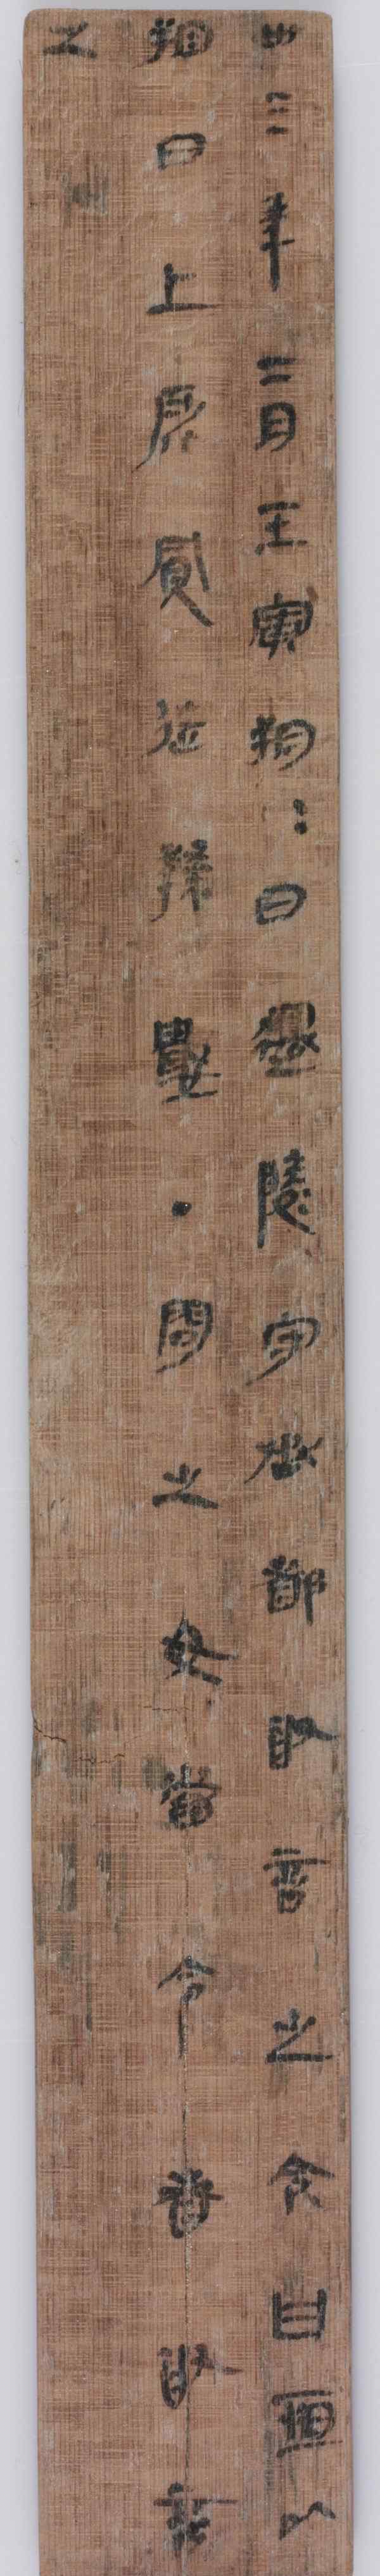 卅三年二月壬寅朔=日遷陵守丞都敢言之令曰恆以
朔日上所買徒隸數·問之毋當令者敢言
之